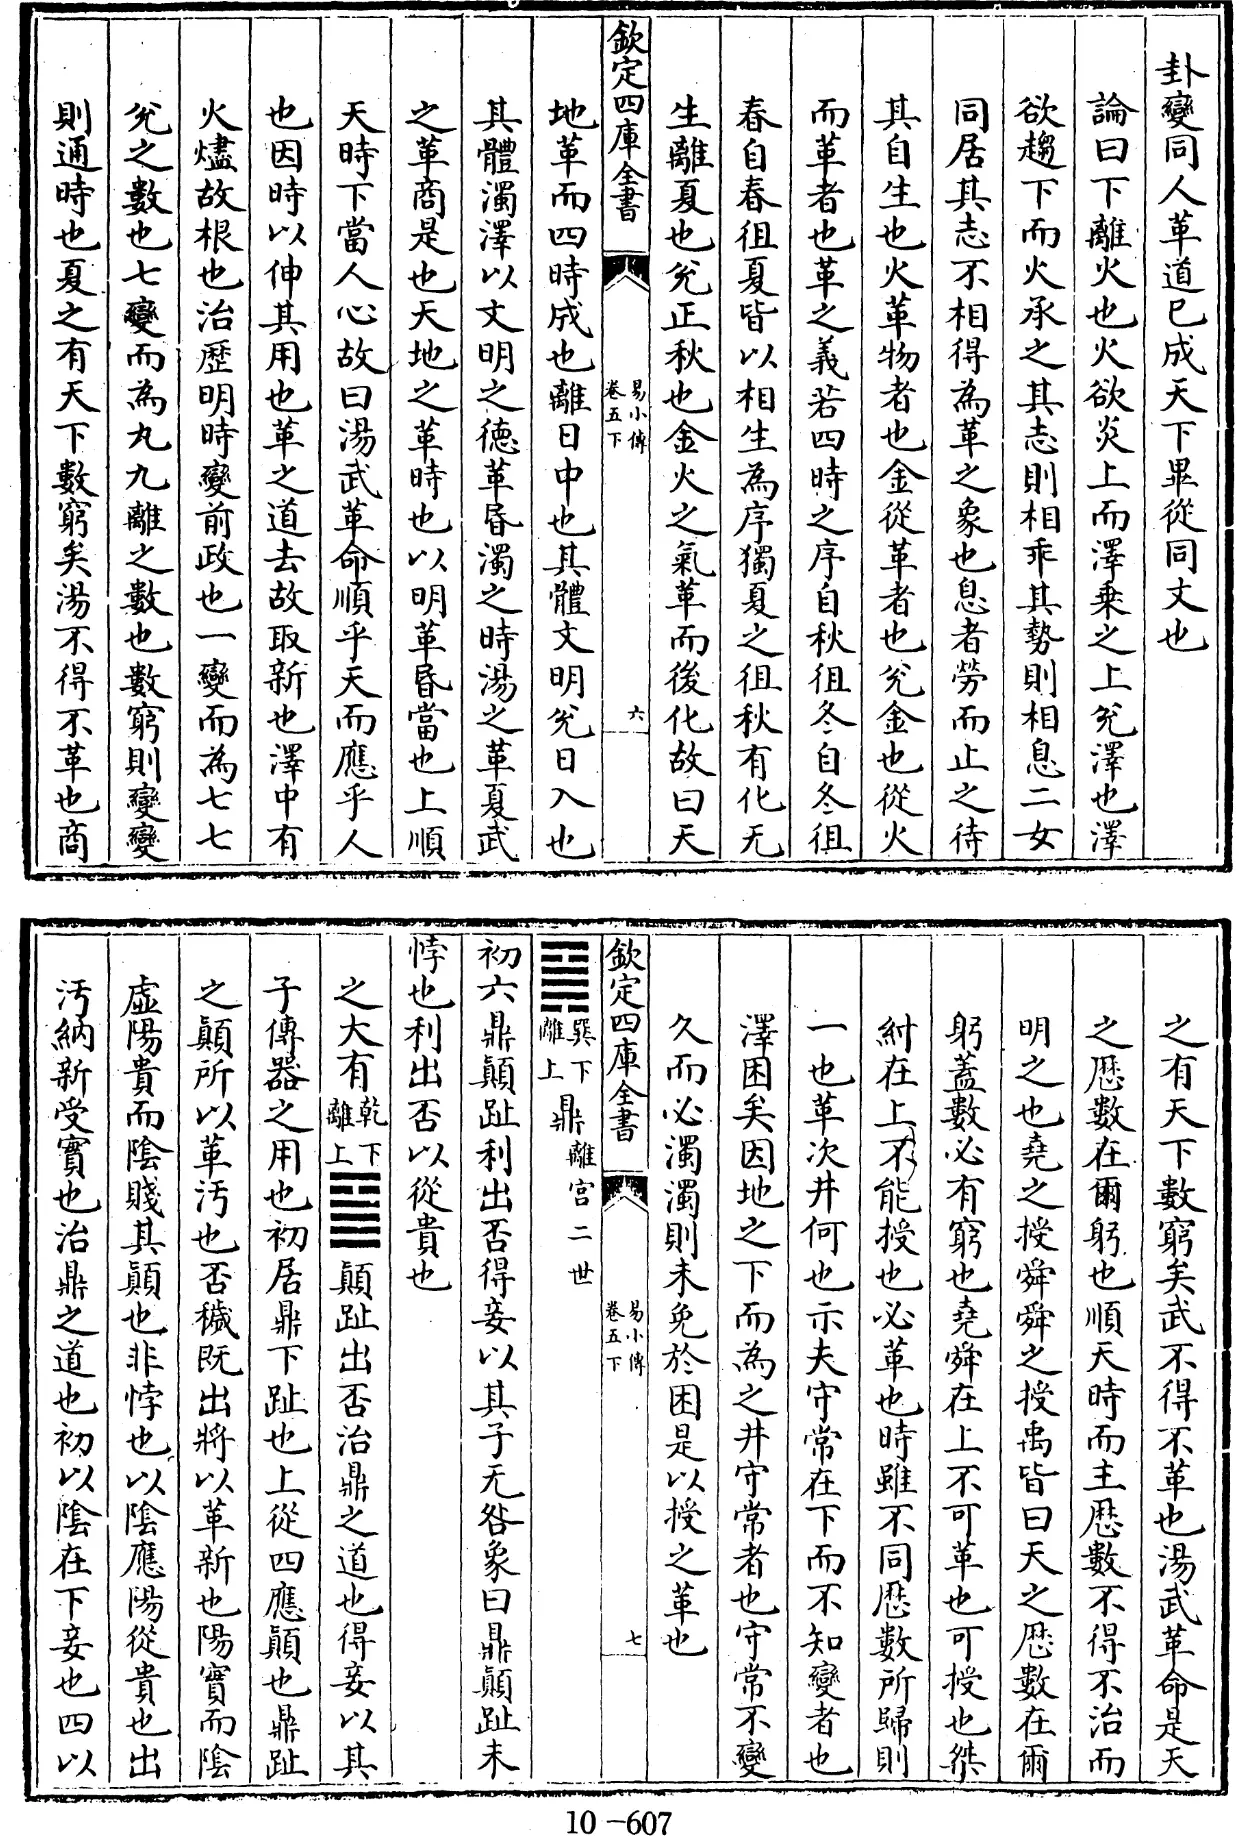 卦變同人革道已成天下畢從同文也
論曰下離火也火欲炎上而澤乗之上兊澤也澤
欲趨下而火承之其志則相乖其勢則相息二女
同居其志不相得為革之象也息者勞而止之待
其自生也火革物者也金從革者也兊金也從火
而革者也革之義若四時之序自秋徂冬自冬徂
春自春徂夏皆以相生為序獨夏之徂秋有化无
生離夏也兊正秋也金火之氣革而後化故曰天
欽定四庫全書
易小傳
卷五下
六
地革而四時成也離日中也其體文明兊日入也
其體濁澤以文明之德革昏濁之時湯之革夏武
之革商是也天地之革時也以明革昏當也上順
天時下當人心故曰湯武革命順乎天而應乎人
也因時以伸其用也革之道去故取新也澤中有
火燼故根也治歴明時變前政也一變而為七七
兊之數也七變而為九九離之數也數窮則變變
則通時也夏之有天下數窮矣湯不得不革也商
之有天下數窮矣武不得不革也湯武革命是天
之厯數在爾躬也順天時而主厯數不得不治而
明之也堯之授舜舜之授禹皆曰天之厯數在爾
躬蓋數必有窮也堯舜在上不可革也可授也桀
紂在上不能授也必革也時雖不同厯數所歸則
一也革次井何也示夫守常在下而不知變者也
澤困矣因地之下而為之井守常者也守常不變
久而必濁濁則未免於困是以授之革也
欽定四庫全書
易小傳
卷五下
七
䷱巽下離上鼎離宫二世
初六鼎顛趾利出否得妾以其子无咎象曰鼎顛趾未
悖也利出否以從貴也
之大有乾下離上䷍顛趾出否治鼎之道也得妾以其
子傳器之用也初居鼎下趾也上從四應顛也鼎趾
之顛所以革汚也否穢既出將以革新也陽實而陰
虛陽貴而陰賤其顛也非悖也以陰應陽從貴也出
汚納新受實也治鼎之道也初以陰在下妾也四以
10-607